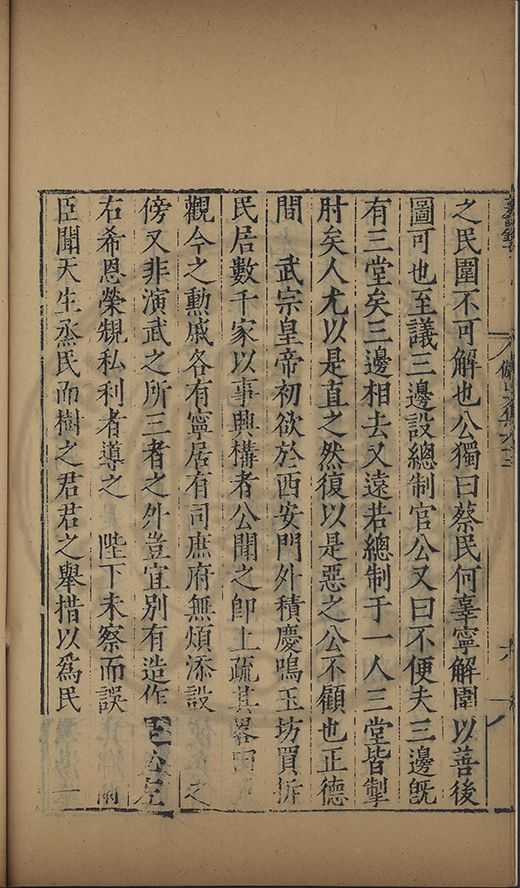 之民圍不可解也公獨曰蔡民何辜寧解圍以善後
圖可也至議三邊設總制官公又曰不便夫三邊旣
有三堂矣三邊相去又遠若總制于一人三堂皆掣
肘矣人尤以是直之然復以是惡之公不顧也正德
間　武宗皇帝初欲於西安門外積慶鳴玉坊買拆
民居數千家以事興構者公聞之卽上疏其畧曰
觀今之勳戚各有寧居有司庶府無煩添設之
傍又非演武之所三者之外豈宜別有造作
右希恩榮覬私利者導之　陛下未察而誤
臣聞天生烝民而樹之君君之舉措以爲民